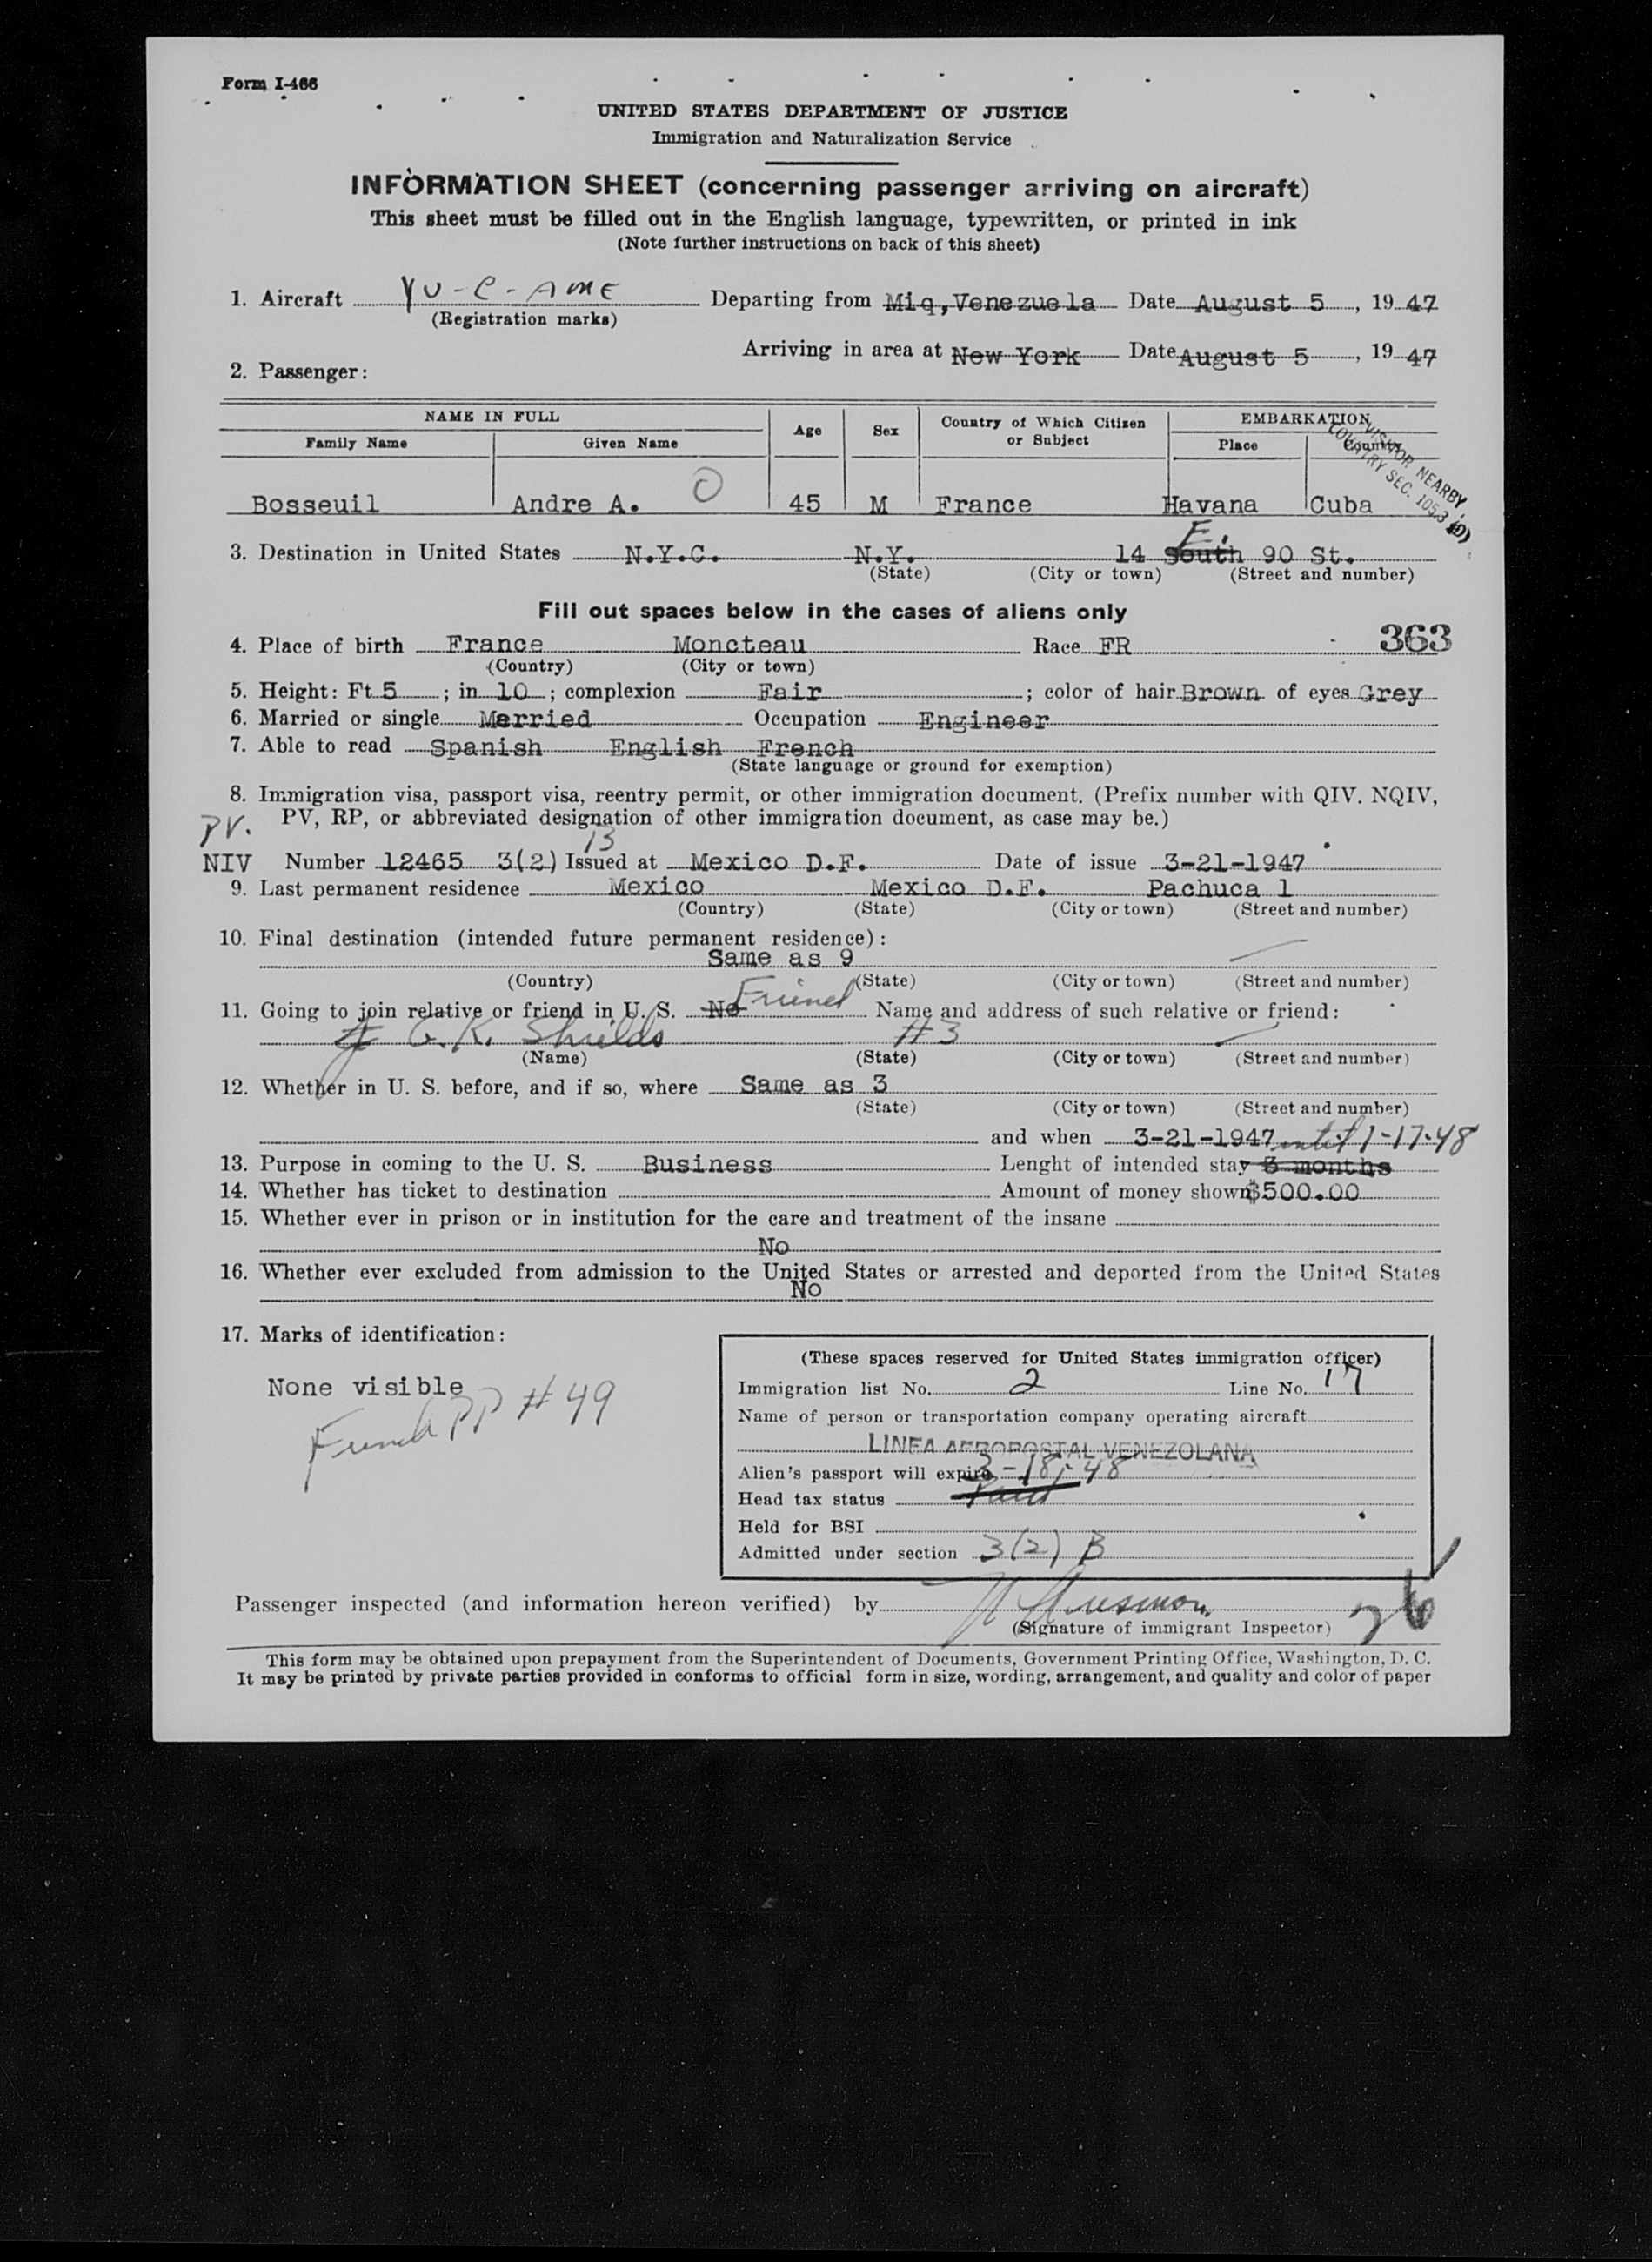 Form I-466
UNITED STATES DEPARTMENT OF JUSTICE
Immigration and Naturalization Service
INFORMATION SHEET (concerning passenger arriving on aircraft)
This sheet must be filled out in the English language, typewritten, or printed in ink
(Note further instructions on back of this sheet)
1. Aircraft YV-C-AME Departing from Miq, Venezuela Date August 5, 1947
(Registration marks)
Arriving in area at New York Date August 5, 1947
2. Passenger:
NAME IN FULL Age Sex Country of Which Citizen or Subject EMBARKATION
Family Name Given Name Place Country
VISITOR NEARBY
COUNTRY SEC. 105.3 (D)
Bosseuil Andre A. O 45 M France Havana Cuba
E.
3. Destination in United States N.Y.C. N.Y. 14 South 90 St.
(State) (City or town) (Street and number)
Fill out spaces below in the cases of aliens only
363
4. Place of birth France Moncteau Race FR
(Country) (City or town)
5. Height: Ft. 5; in 10; complexion Fair; color of hair Brown of eyes Grey
6. Married or single Married Occupation Engineer
7. Able to read Spanish English French
(State language or ground for exemption)
8. Immigration visa, passport visa, reentry permit, or other immigration document. (Prefix number with QIV. NQIV,
PV. PV, RP, or abbreviated designation of other immigration document, as case may be.)
B
NIV Number 12465 3(2) Issued at Mexico D.F. Date of issue 3-21-1947
9. Last permanent residence Mexico Mexico D.F. Pachuca 1
(Country) (State) (City or town) (Street and number)
10. Final destination (intended future permanent residence):
Same as 9
(Country) (State) (City or town) (Street and number)
11. Going to join relative or friend in U. S. No Friend Name and address of such relative or friend:
G. K. Shields #3
(Name) (State) (City or town) (Street and number)
12. Whether in U. S. before, and if so, where Same as 3
(State) (City or town) (Street and number)
and when 3-21-1947 until 1-17-48
13. Purpose in coming to the U. S. Business Lenght of intended stay months
14. Whether has ticket to destination Amount of money shown $500.00
15. Whether ever in prison or in institution for the care and treatment of the insane
No
16. Whether ever excluded from admission to the United States or arrested and deported from the United States
No
17. Marks of identification:
None visible
French PP #49
(These spaces reserved for United States immigration officer)
Immigration list No. 2 Line No. 17
Name of person or transportation company operating aircraft
LINEA AEROPOSTAL VENEZOLANA
Alien's passport will expire 3-18-48
Head tax status Paid
Held for BSI
Admitted under section 3(2) B
Passenger inspected (and information hereon verified) by
(Signature of immigrant Inspector)
This form may be obtained upon prepayment from the Superintendent of Documents, Government Printing Office, Washington, D. C.
It may be printed by private parties provided in conforms to official form in size, wording, arrangement, and quality and color of paper